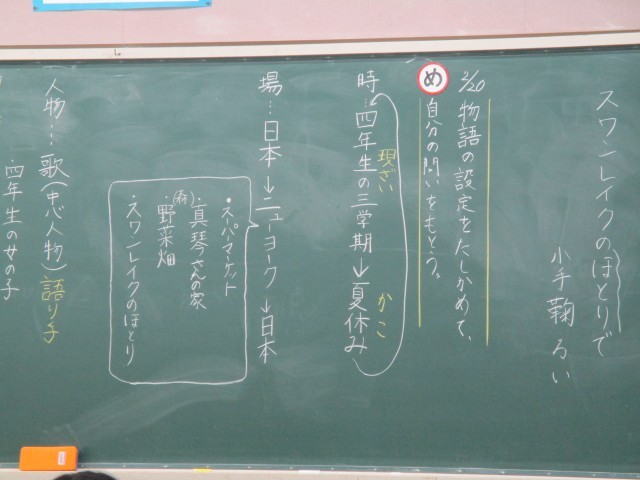 スワンレイクのほとりで
小手鞠るい
2/20 物語の設定をたしかめて、
め 自分の問いをもとう。
時…四年生の三学期→夏休み
現ざい
かこ
場…日本→ニューヨーク→日本
・スーパーマーケット
・真琴さんの家
・野菜畑
・スワンレイクのほとり
人物…歌(中心人物)語り子
四年生の女の子